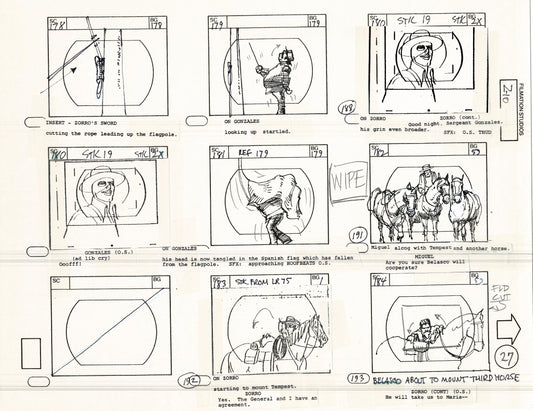 SC
178
BG
178
SC
179
BG
179
SC
180
STK 19
STK
BG
2X
INSERT - ZORRO'S SWORD
cutting the rope leading up the flagpole.
ON GONZALES
looking up startled.
188
ON ZORRO
his grin even broader.
ZORRO (cont.)
Good night, Sergeant Gonzales.
SFX: O.S. THUD
FILMATION STUDIOS
Z10
180
STK 19
STK
BG
2X
SC
181
REF 179
BG
179
WIPE
SC
182
BG
GONZALES (O.S.)
(ad lib cry)
Ooofff!
ON GONZALES
his head is now tangled in the Spanish flag which has fallen
from the flagpole. SFX: approaching HOOFBEATS O.S.
191
Miguel along with Tempest and another horse.
MIGUEL
Are you sure Belasco will
cooperate?
SC
BG
SC
183
STK FROM LR 75
BG
1
SC
184
BG
FLD
CUT
192
ON ZORRO
starting to mount Tempest.
ZORRO
Yes. The General and I have an
agreement.
193
BELASCO ABOUT TO MOUNT THIRD HORSE
ZORRO (CONT) (O.S.)
He will take us to Maria--
27